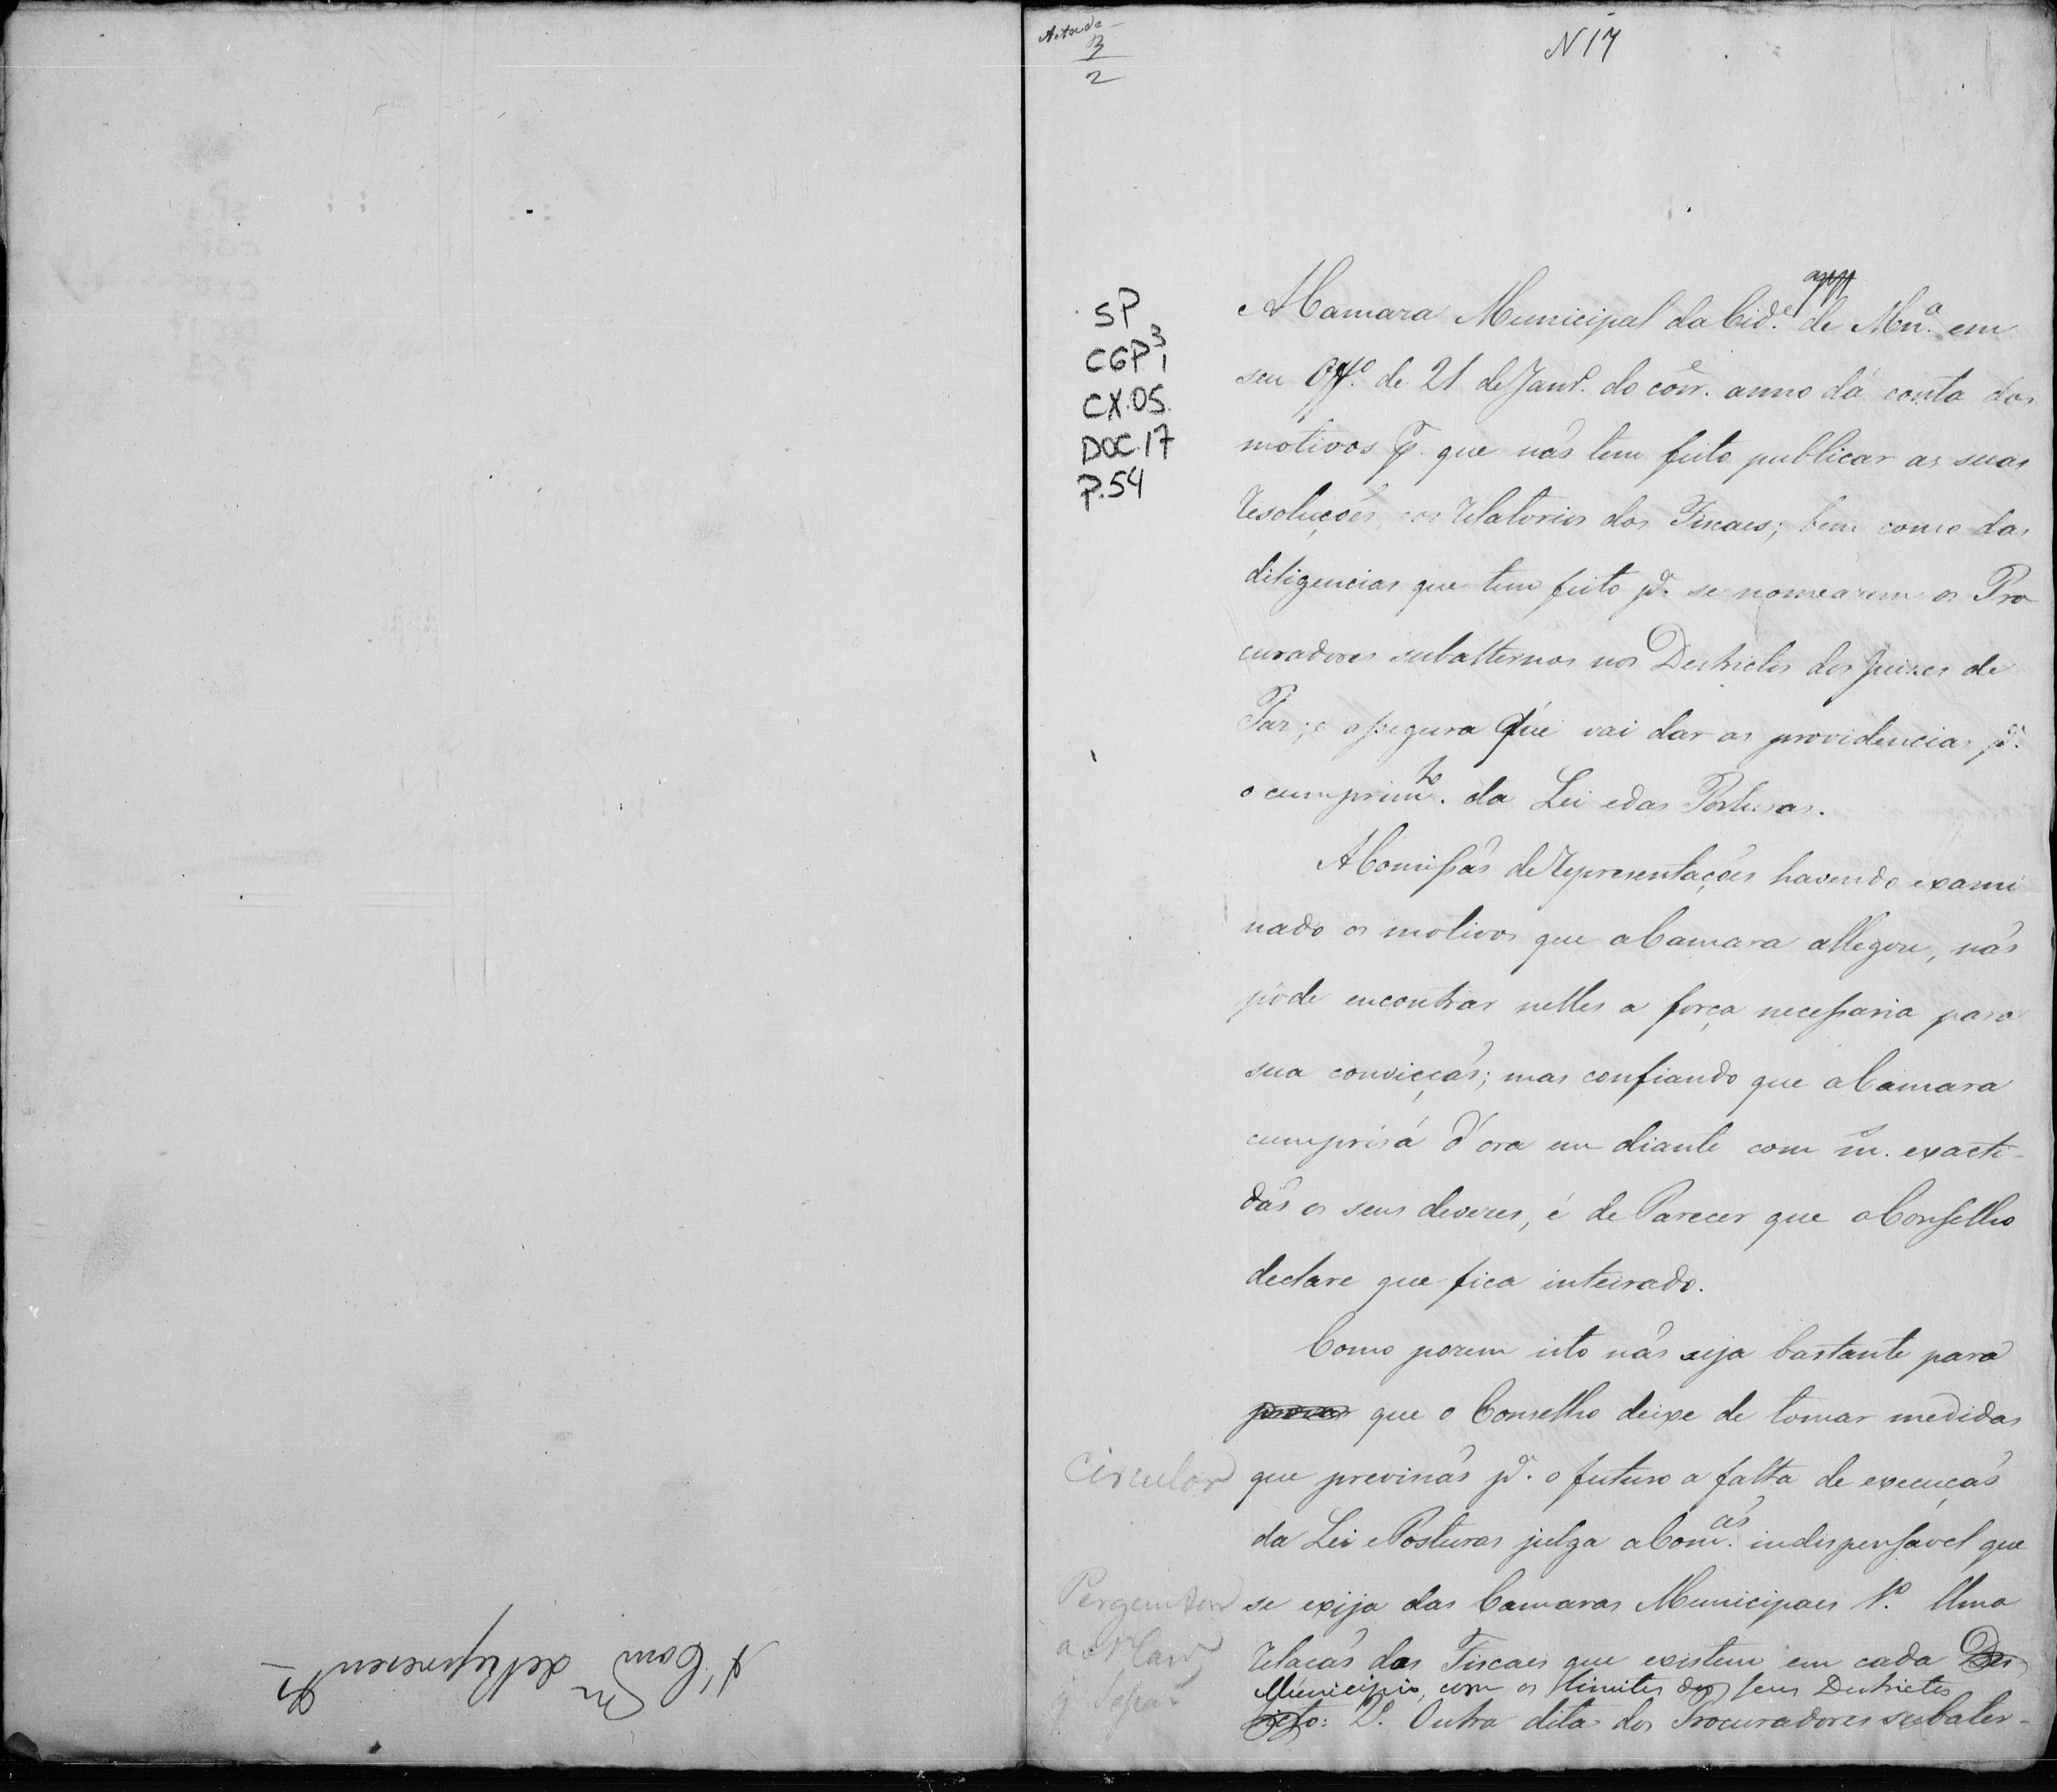 A' Com.m de Represent.es
Acta de
3
2
N 17
SP
CGP 3 1
CX.05
DOC.17
P.54
A Camara Municipal da Cid.e de Mn.a em
seu Off.o de 21 de Janr.o do corr.e anno dá conta dos
motivos p.r que não tem feito publicar as suas
Resoluções, e os Relatorios dos Fiscaes; bem como das
diligencias que tem feito p.a se nomearem os Pro
curadores subalternos nos Destrictos dos Juizes de
Paz; e assegura que vai dar as providencias p.a
o cumprim.to da Lei e das Posturas.
A Comissão de Representações havendo exami
nado os motivos que a Camara allegou, não
pôde encontrar nelles a força necessaria para
sua convicção; mas confiando que a Camara
cumprirá d'ora em diante com m.a exacti-
dão os seus deveres, é de Parecer que o Conselho
declare que fica inteirado.
Como porem isto não seja bastante para
que o Conselho deixe de tomar medidas
Circular
que previnão p.a o futuro a falta de execução
da Lei e Posturas julga a Com.ão indispensavel que
se exija das Camaras Municipaes 1.o Uma
Relação dos Fiscaes que existem em cada Des
Municipio, com os limites dos seus Destrictos
tricto: 2.o Outra dita dos Procuradores subalter-